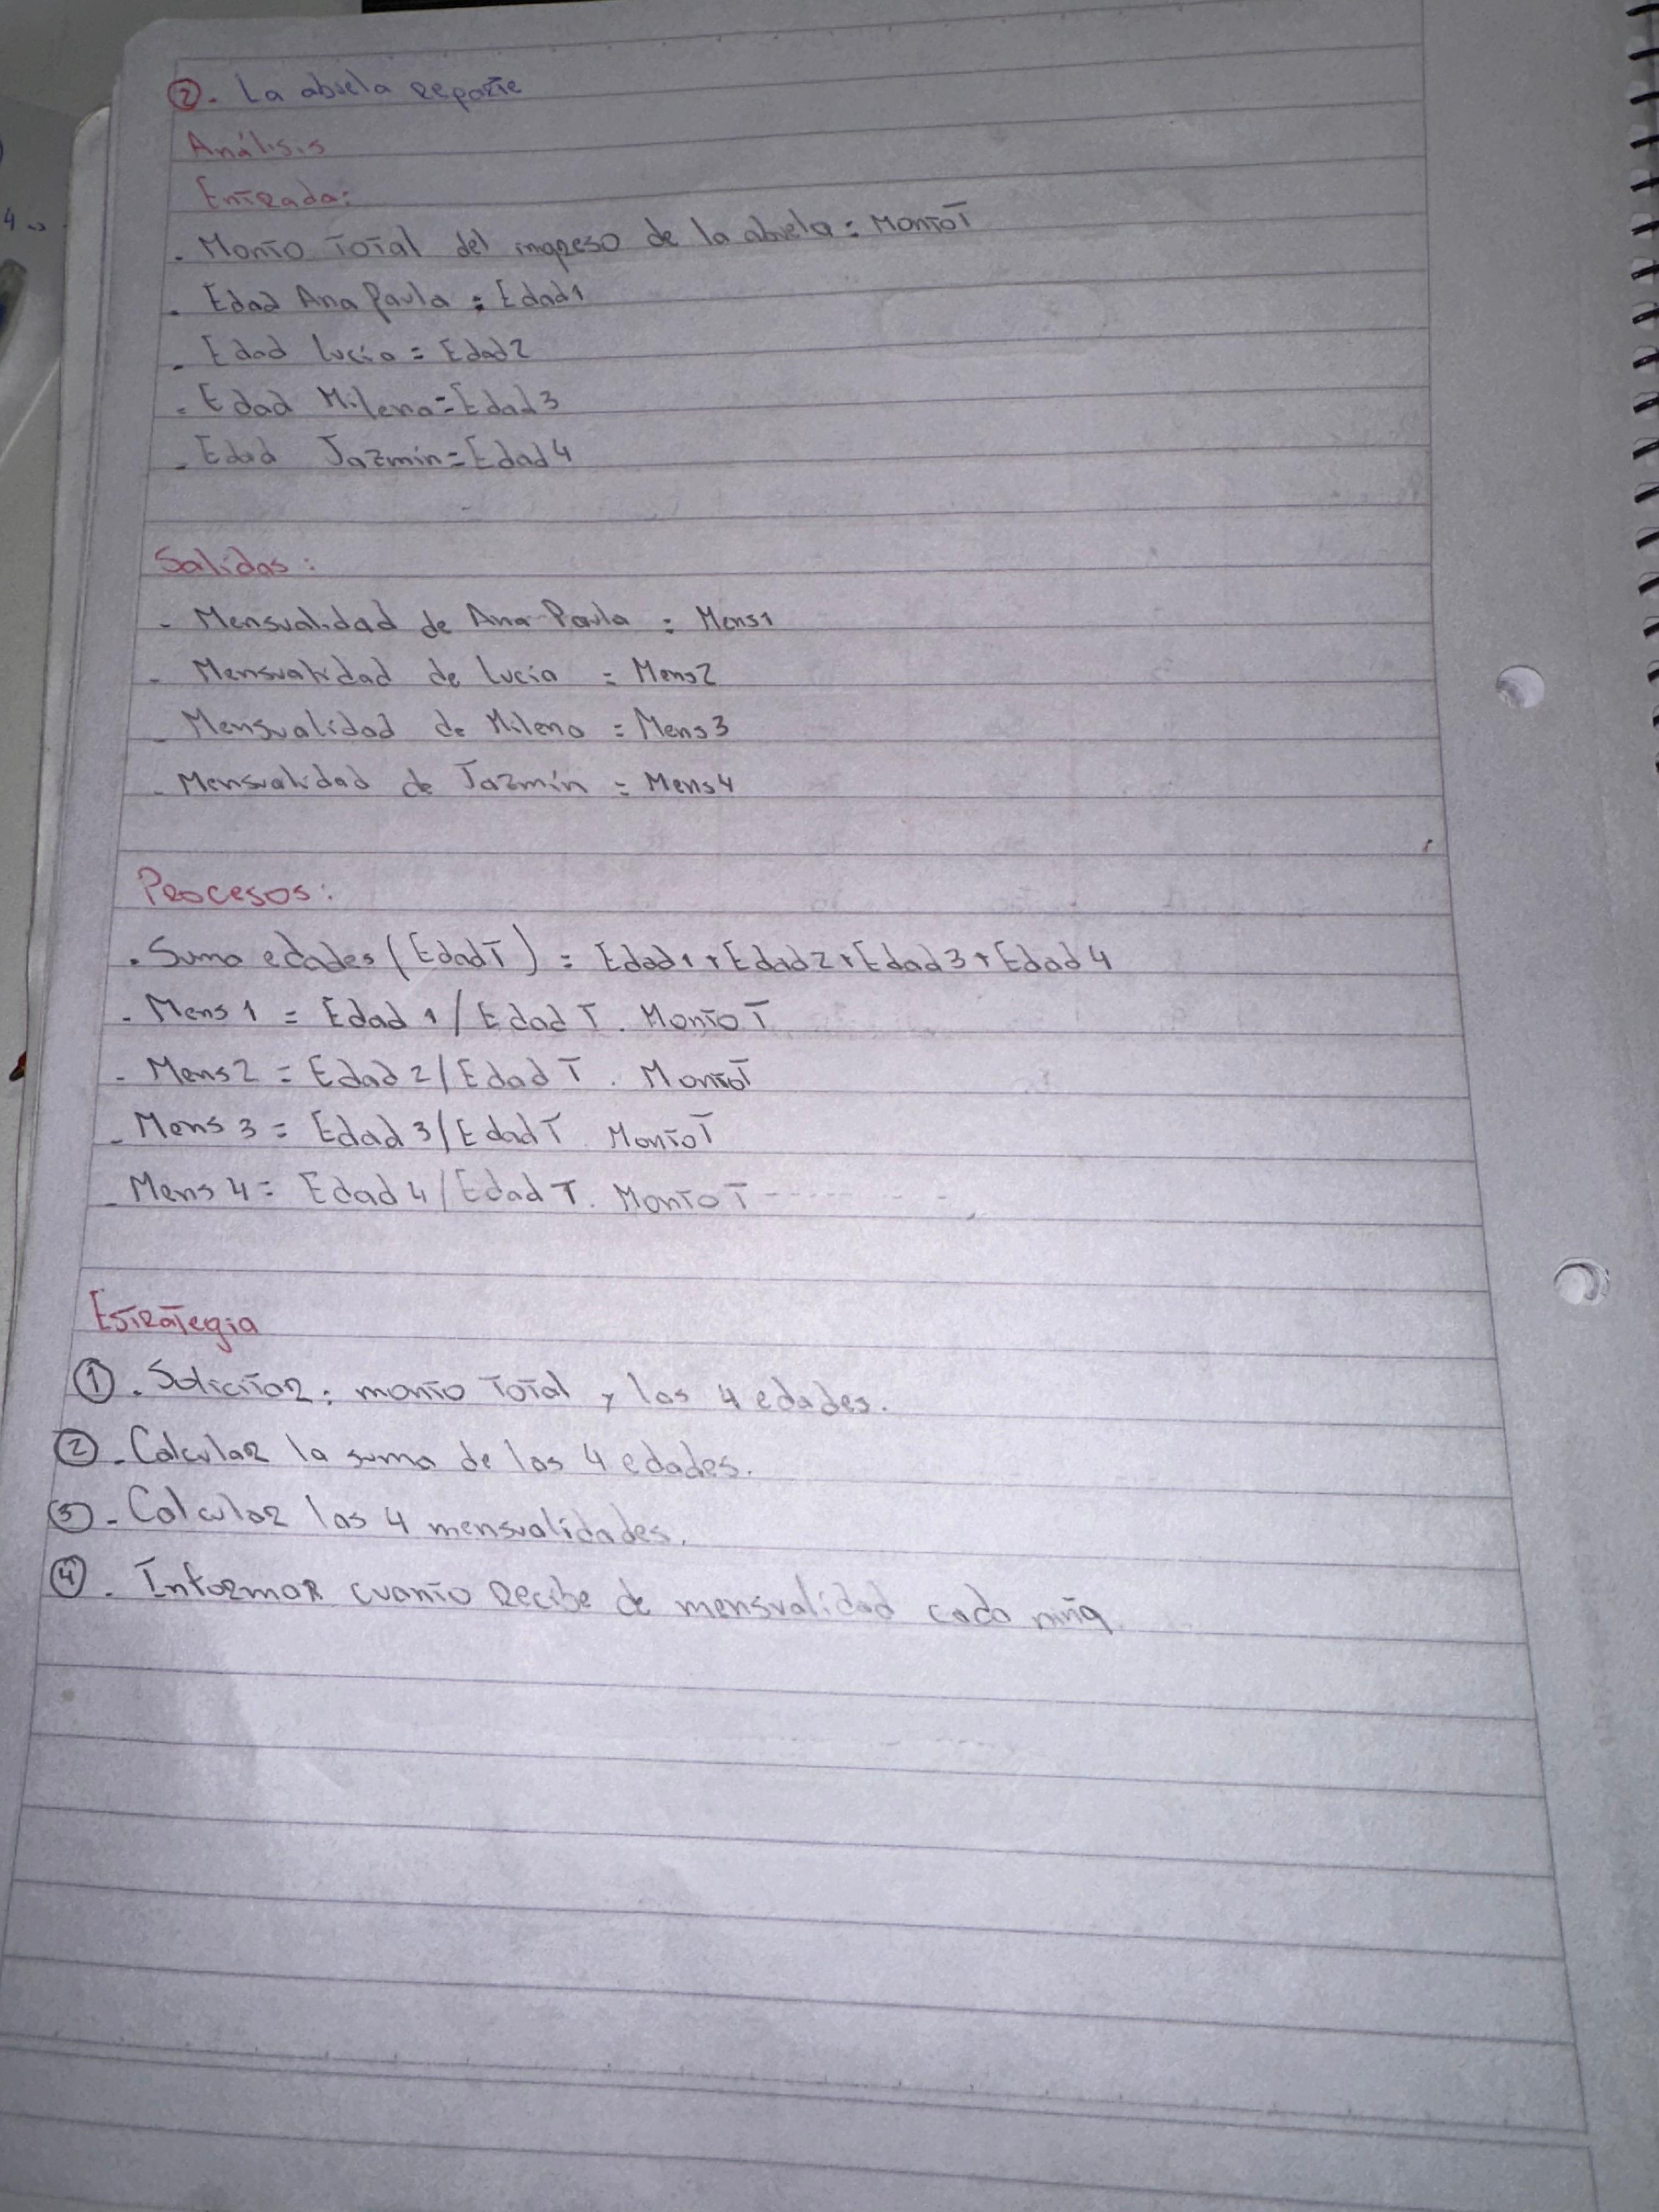 ②. La abuela reparte
Análisis
Entrada:
. Monto Total del ingreso de la abuela: MontoT
. Edad Ana Paula: Edad1
- Edad Lucía = Edad2
- Edad Milena = Edad3
- Edad Jazmín = Edad4
Salidas:
- Mensualidad de Ana Paula : Mens1
- Mensualidad de Lucía = Mens2
- Mensualidad de Milena = Mens3
- Mensualidad de Jazmín = Mens4
Procesos:
. Suma edades (EdadT) = Edad1+Edad2+Edad3+Edad4
- Mens1 = Edad1/EdadT . MontoT
- Mens2 = Edad2/EdadT . MontoT
- Mens3 = Edad3/EdadT . MontoT
- Mens4 = Edad4/EdadT . MontoT
Estrategia
①. Solicitar: monto Total y las 4 edades.
②. Calcular la suma de las 4 edades.
③. Calcular las 4 mensualidades.
④. Informar cuanto recibe de mensualidad cada niña